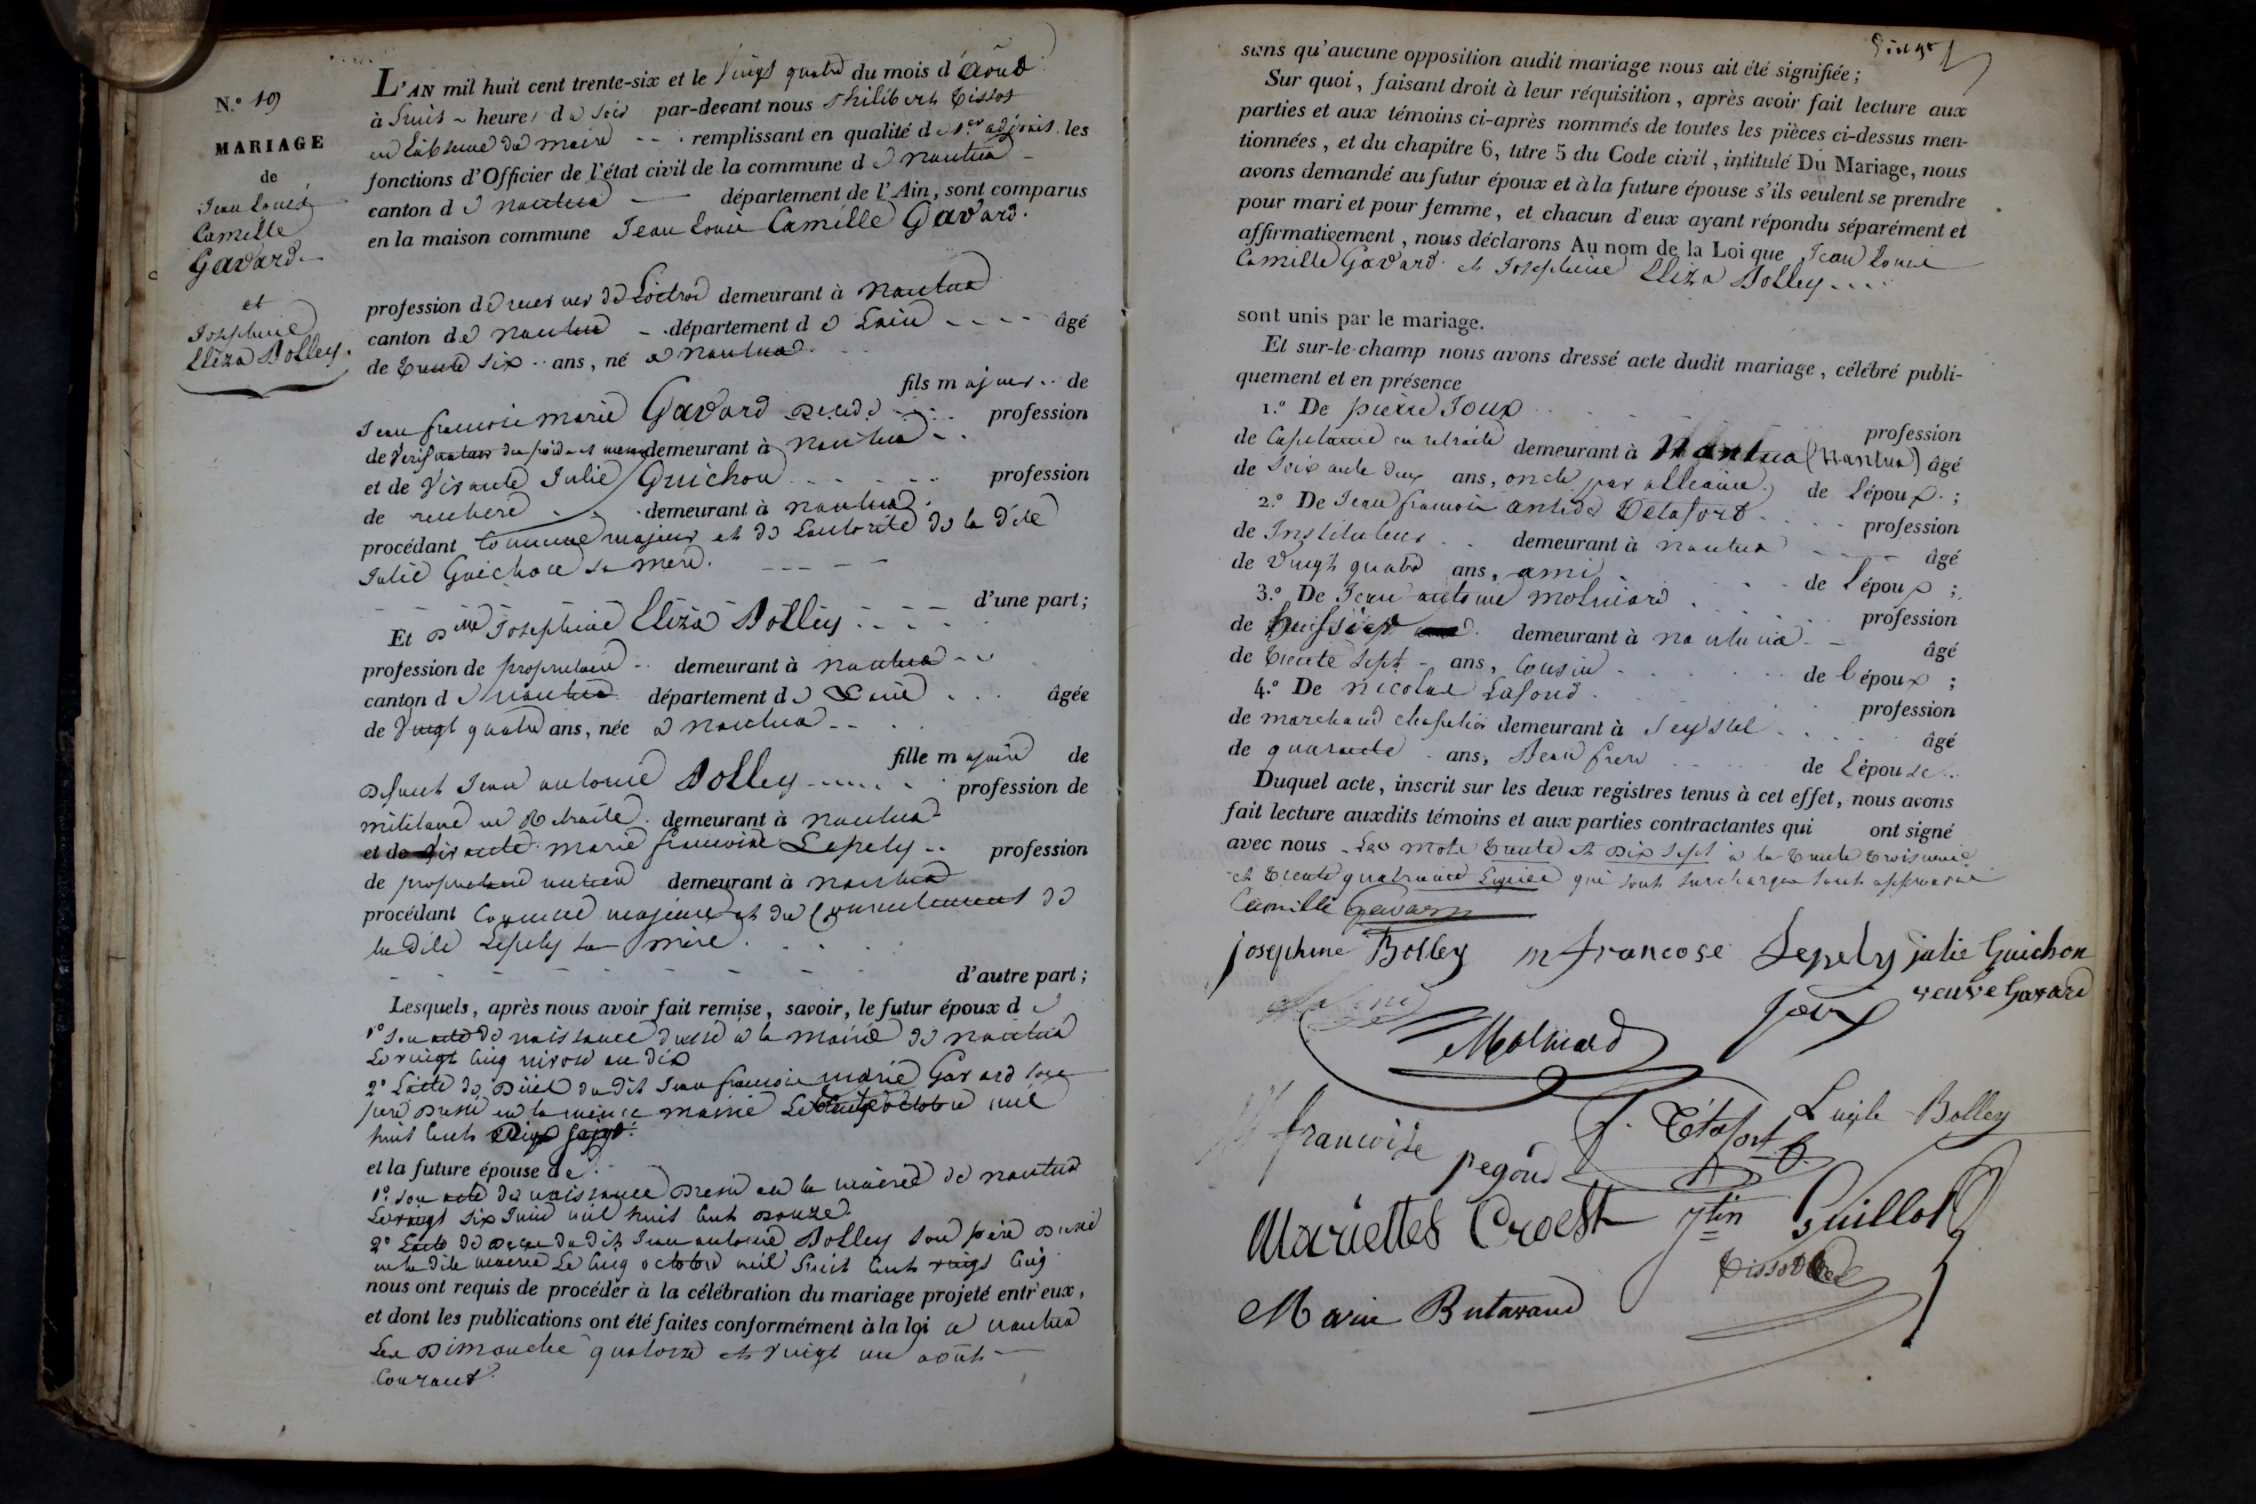 N.º 19
MARIAGE
de
Jean Louis
Camille
Gavard.
et
Josephine
Eliza Bolley.
L'AN mil huit cent trente-six et le Vingt quatre du mois d'août
à huit heures du soir par-devant nous Philibert Tissot
en l'absence du maire remplissant en qualité de 1.er adjoint les
fonctions d'Officier de l'état civil de la commune de nantua
canton de nantua département de l'Ain, sont comparus
en la maison commune Jean Louis Camille Gavard.
profession de receveur de L'octroi demeurant à nantua
canton de nantua département de L'ain âgé
de trente six ans, né a nantua
fils majeur de
Jean francois marie Gavard profession
de Verificateur des poids et mesures demeurant à nantua
et de Vivante Julie Guichon profession
de rentiere demeurant à nantua
procédant comme majeur et de L'autorité de la dite
Julie Guichon sa mere.
d'une part;
Et Dlle Josephine Eliza Bolley
profession de propriétaire demeurant à nantua
canton de nantua département de L'ain âgée
de Vingt quatre ans, née a nantua
fille majeure de
Defunt Jean antoine Bolley profession de
militaire en Retraite demeurant à nantua
et de Vivante marie francoise Lepely profession
de propriétaire demeurant à nantua
procédant comme majeure et du Consentement de
la dite Lepely sa mère.
d'autre part;
Lesquels, après nous avoir fait remise, savoir, le futur époux de
1º son acte de naissance dressé a la mairie de nantua
Le vingt cinq nivose an dix
2º L'acte de Décès du dit Jean francois marie Gavard son
pere Dressé en la meme mairie Le octobre mil
huit cent
et la future épouse de
1º son acte de naissance Dressé en la mairie de nantua
Le vingt six Juin mil huit cent Douze
2º L'acte de Deces du dit Jean antoine Bolley son père Dressé
en la dite mairie Le cinq octobre mil huit cent vingt cinq
nous ont requis de procéder à la célébration du mariage projeté entr'eux,
et dont les publications ont été faites conformément à la loi a nantua
Les Dimanche quatorze et vingt un août
Courant
sans qu'aucune opposition audit mariage nous ait été signifiée;
Sur quoi, faisant droit à leur réquisition, après avoir fait lecture aux
parties et aux témoins ci-après nommés de toutes les pièces ci-dessus men-
tionnées, et du chapitre 6, titre 5 du Code civil, intitulé Du Mariage, nous
avons demandé au futur époux et à la future épouse s'ils veulent se prendre
pour mari et pour femme, et chacun d'eux ayant répondu séparément et
affirmativement, nous déclarons Au nom de la Loi que Jean Louis
Camille Gavard et Josephine Eliza Bolley
sont unis par le mariage.
Et sur-le-champ nous avons dressé acte dudit mariage, célébré publi-
quement et en présence
1.º De pierre Joux profession
de Capitaine en retraite demeurant à Nantua (Nantua) âgé
de Soixante deux ans, oncle par alliance de L'époux;
2.º De Jean francois antide Détafort profession
de Instituteur demeurant à nantua âgé
de Vingt quatre ans, ami de L'époux;
3.º De Jean antoine Molniard profession
de huissier demeurant à nantua âgé
de trente sept ans, Cousin de l'époux;
4.º De nicolas Lafond profession
de marchand chapelier demeurant à Seyssel âgé
de quarante ans, Beau frere de L'épouse
Duquel acte, inscrit sur les deux registres tenus à cet effet, nous avons
fait lecture auxdits témoins et aux parties contractantes qui ont signé
avec nous Les mots trente et Dix sept a la trente troisieme
et trente quatrieme Lignes qui sont surchargés sont approuvés
Camille Gavard
josephine Bolley m francose Lepely julie Guichon
veuve Gavard
Joux
Molniard
francoise pegoud J. Détafort Lucile Bolley
Mariettes Croest Jtin Guillot
Tissot
Marie Butavand